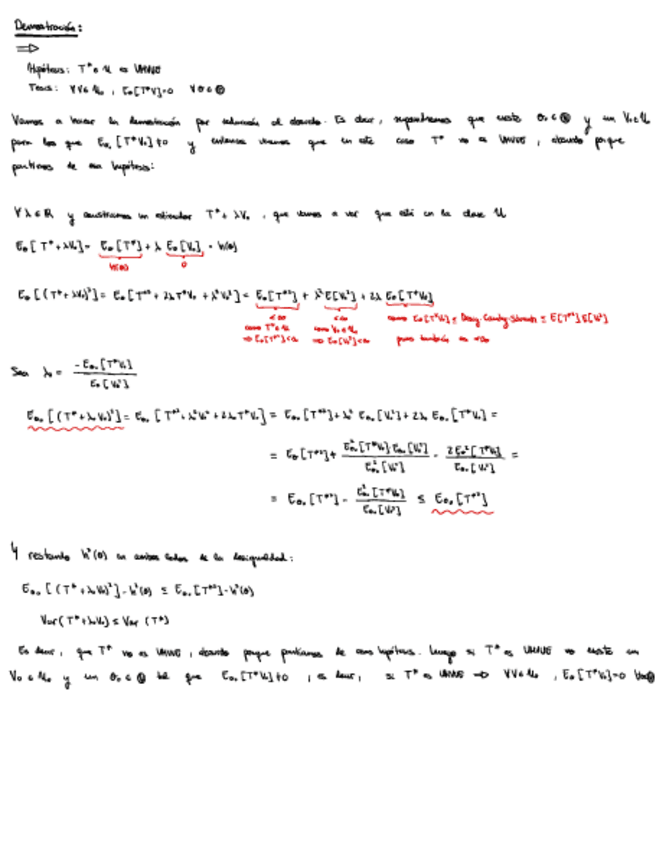 Demostración:
⟹
Hipótesis: T* ∈ U es UMVUE
Tesis: ∀V∈U₀, E_θ[T*V]=0 ∀θ∈Θ
Vamos a hacer la demostración por reducción al absurdo. Es decir, supondremos que existe θ₀∈Θ y un V₀∈U₀
para los que E_θ₀[T*V₀]≠0 y entonces veremos que en este caso T* no es UMVUE, absurdo porque
partimos de esa hipótesis:
∀λ∈ℝ y construimos un estimador T*+λV₀, que vamos a ver que está en la clase U
E_θ[T*+λV₀]= E_θ[T*]+λ E_θ[V₀] = h(θ)
h(θ) 0
E_θ[(T*+λV₀)²]= E_θ[T*²+2λT*V₀+λ²V₀²]= E_θ[T*²]+λ²E[V₀²]+2λ E_θ[T*V₀]
<∞ <∞ como E_θ[T*V₀] ≤ Desig. Cauchy-Schwartz ≤ E[T*²]E[V₀²]
como T*∈U como V₀∈U₀
⇒ E_θ[T*²]<∞ ⇒ E_θ[V₀²]<∞ pues también es <∞
Sea λ₀ = -E_θ₀[T*V₀] / E_θ₀[V₀²]
E_θ₀[(T*+λ₀V₀)²]= E_θ₀[T*²+λ₀²V₀²+2λ₀T*V₀]= E_θ₀[T*²]+λ₀² E_θ₀[V₀²]+2λ₀ E_θ₀[T*V₀]=
= E_θ[T*²]+ E²_θ₀[T*V₀]·E_θ₀[V₀²] / E²_θ₀[V₀²] - 2E_θ₀²[T*V₀] / E_θ₀[V₀²] =
= E_θ₀[T*²] - E²_θ₀[T*V₀] / E_θ₀[V₀²] ≤ E_θ₀[T*²]
Y restando h²(θ) en ambos lados de la desigualdad:
E_θ₀[(T*+λ₀V₀)²]-h²(θ) ≤ E_θ₀[T*²]-h²(θ)
Var(T*+λ₀V₀) ≤ Var(T*)
Es decir, que T* no es UMVUE, absurdo porque partíamos de esa hipótesis. Luego si T* es UMVUE no existe un
V₀∈U₀ y un θ₀∈Θ tal que E_θ₀[T*V₀]≠0, es decir, si T* es UMVUE ⟹ ∀V∈U₀, E_θ[T*V₀]=0 ∀θ∈Θ